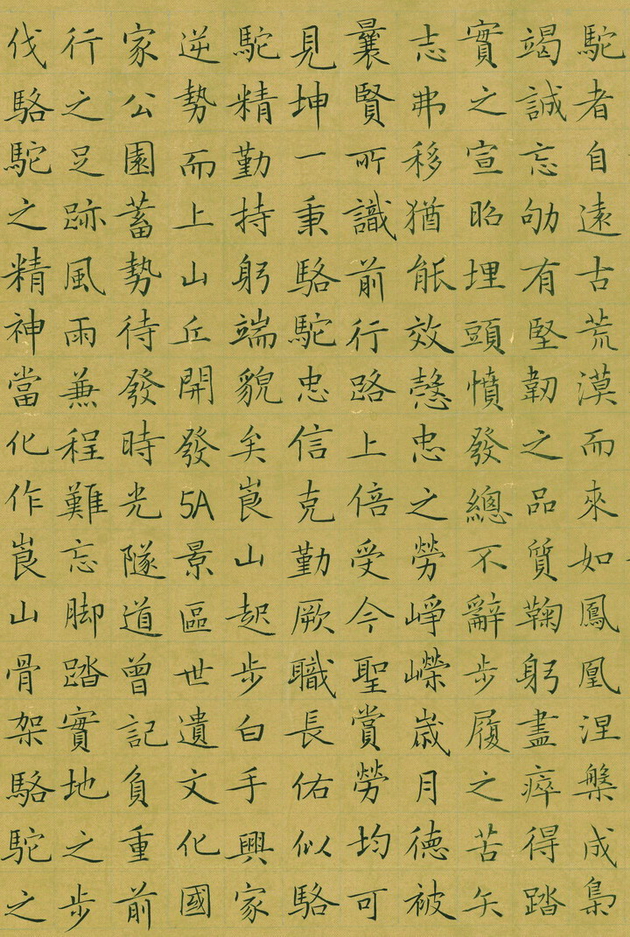 駝者自遠古荒漠而來如鳳凰涅槃成梟
竭誠忘劬有堅韌之品質鞠躬盡瘁得踏
實之宣昭埋頭憤發總不辭步履之苦矢
志弗移猶能效慤忠之勞崢嶸歲月德被
曩賢所識前行路上倍受今聖賞勞均可
見坤一秉駱駝忠信克勤厥職長佑似駱
駝精勤持躬端貌矣崀山起步白手興家
逆勢而上山丘開發5A景區世遺文化國
家公園蓄勢待發時光隧道曾記負重前
行之足跡風雨兼程難忘脚踏實地之步
伐駱駝之精神當化作崀山骨架駱駝之